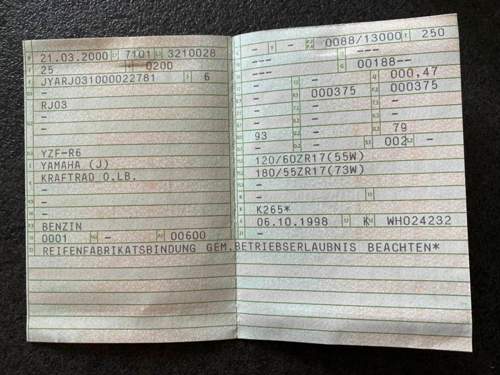 21.03.2000 7101 3210028
25 0200
JYARJ031000022781 6
-
RJ03
-
-
YZF-R6
YAMAHA (J)
KRAFTRAD O.LB.
-
-
-
BENZIN
0001 - 00600
- - 0088/13000 250
--- 00188--
--- 000,47
- 000375 000375
- - -
- - -
93 79
- - 002 -
120/60ZR17(55W)
180/55ZR17(73W)
-
-
-
K265*
06.10.1998 K WH024232
-
REIFENFABRIKATSBINDUNG GEM.BETRIEBSERLAUBNIS BEACHTEN*